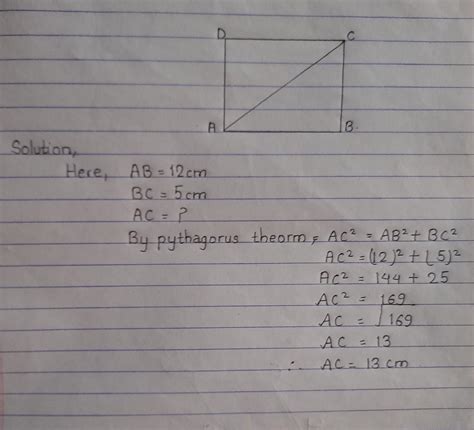 D C
A B
Solution,
Here, AB = 12cm
BC = 5cm
AC = ?
By pythagorus theorm, AC² = AB² + BC²
AC² = (12)² + (5)²
AC² = 144 + 25
AC² = 169
AC = √169
AC = 13
∴ AC = 13 cm